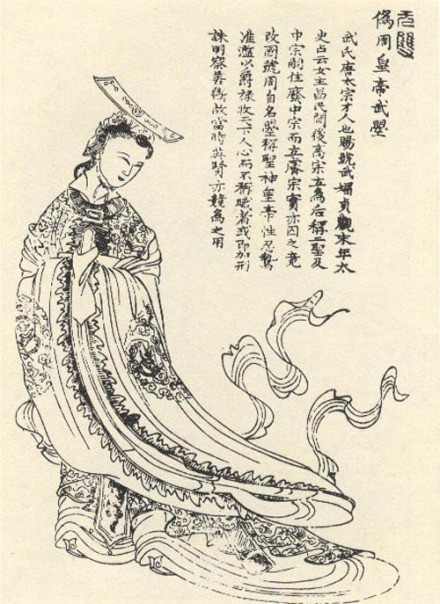 无雙
偽周皇帝武曌
武氏唐太宗才人也賜號武媚貞觀末年太
史占云女主昌民間後高宗立為后稱二聖及
中宗嗣位廢中宗而立睿宗實亦囚之竟
改國號周自名曌稱聖神皇帝性忍鷙
濫以爵祿收天下人心而不稱職者或即加刑
誅明察善故當時英賢亦競為之用